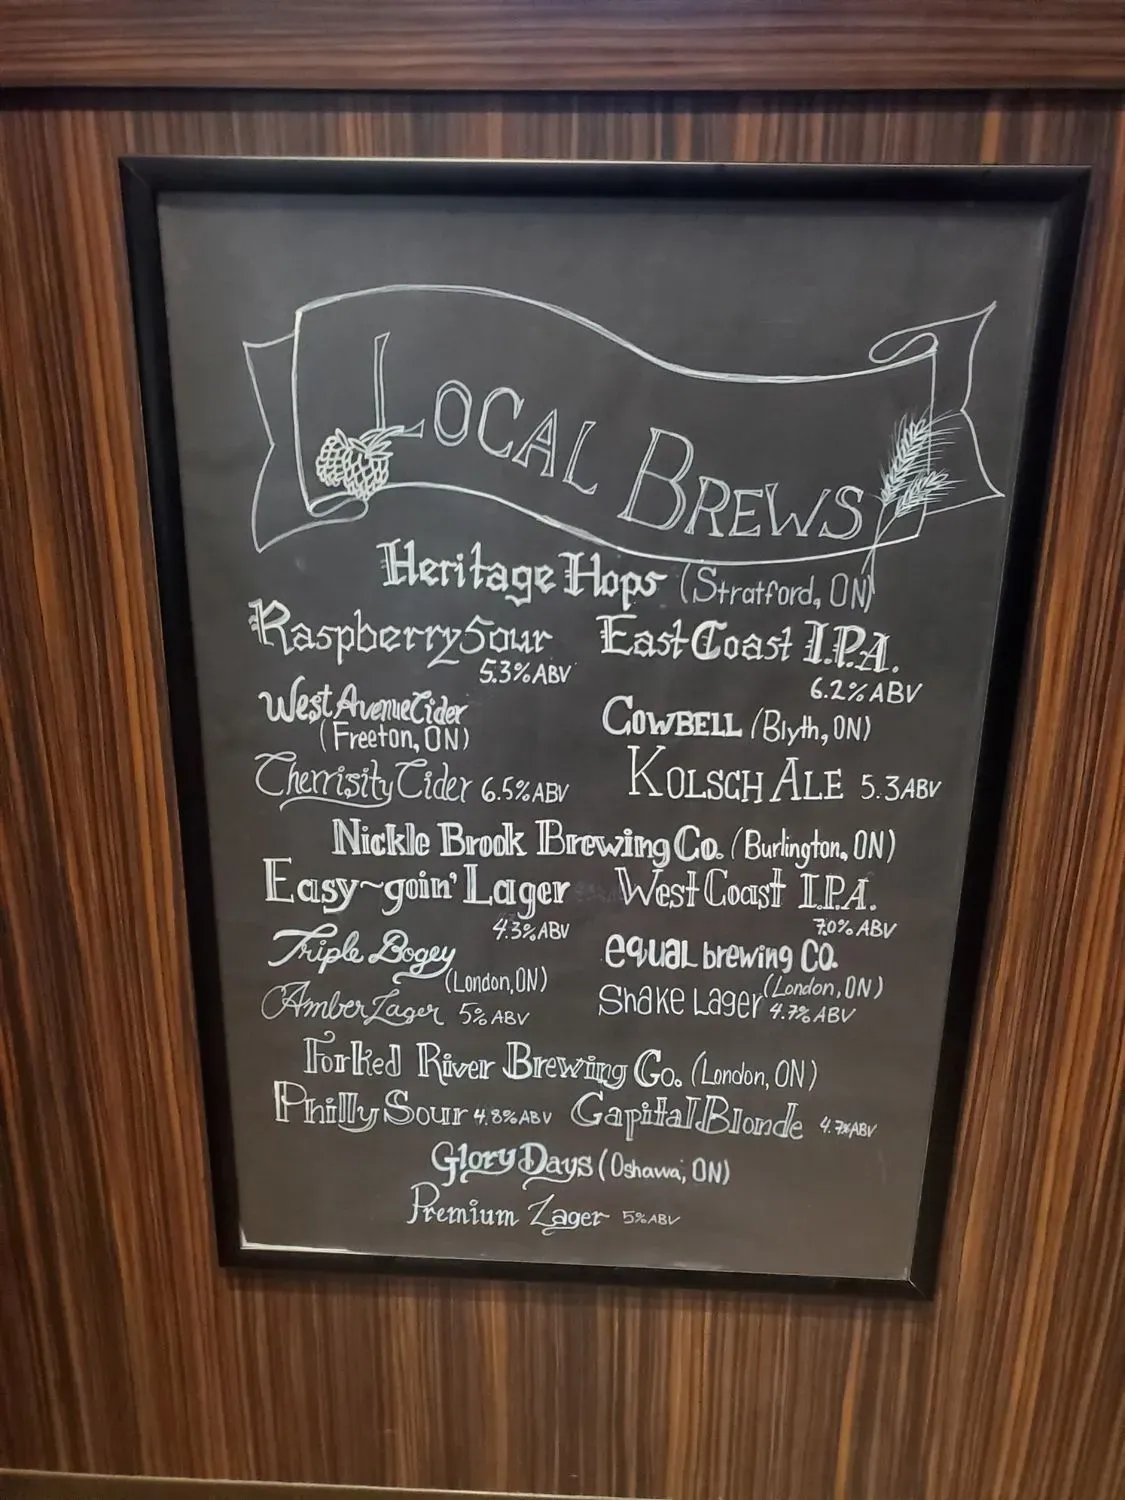 LOCAL BREWS
Heritage Hops (Stratford, ON)
Raspberry Sour
5.3% ABV
East Coast I.P.A.
6.2% ABV
West Avenue Cider
(Freeton, ON)
Cherrisity Cider 6.5% ABV
COWBELL (Blyth, ON)
KOLSCH ALE 5.3 ABV
Nickle Brook Brewing Co. (Burlington, ON)
Easy~goin' Lager
4.3% ABV
West Coast I.P.A.
7.0% ABV
Triple Bogey
(London, ON)
Amber Lager 5% ABV
equal brewing CO.
(London, ON)
Shake Lager 4.7% ABV
Forked River Brewing Co. (London, ON)
Philly Sour 4.8% ABV Capital Blonde 4.7% ABV
Glory Days (Oshawa, ON)
Premium Lager 5% ABV